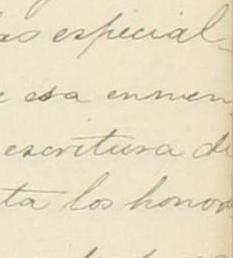 las especial-
e esa enmen
escritura de
ta los honor